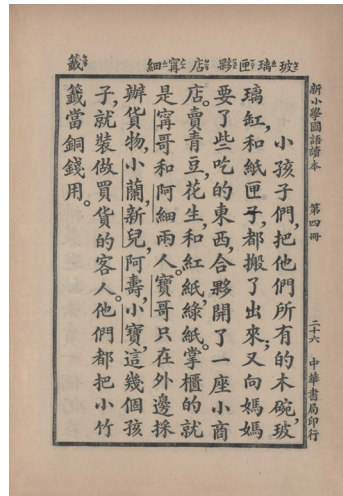 玻璃匣夥店甯細 籤
新小學國語讀本 第四冊 二十六 中華書局印行
小孩子們,把他們所有的木碗,玻
璃缸,和紙匣子,都搬了出來;又向媽媽
要了些吃的東西,合夥開了一座小商
店。賣青豆,花生,和紅紙,綠紙。掌櫃的就
是甯哥和阿細兩人。寶哥只在外邊採
辦貨物,小蘭,新兒,阿壽,小寶,這幾個孩
子,就裝做買貨的客人。他們都把小竹
籤當銅錢用。